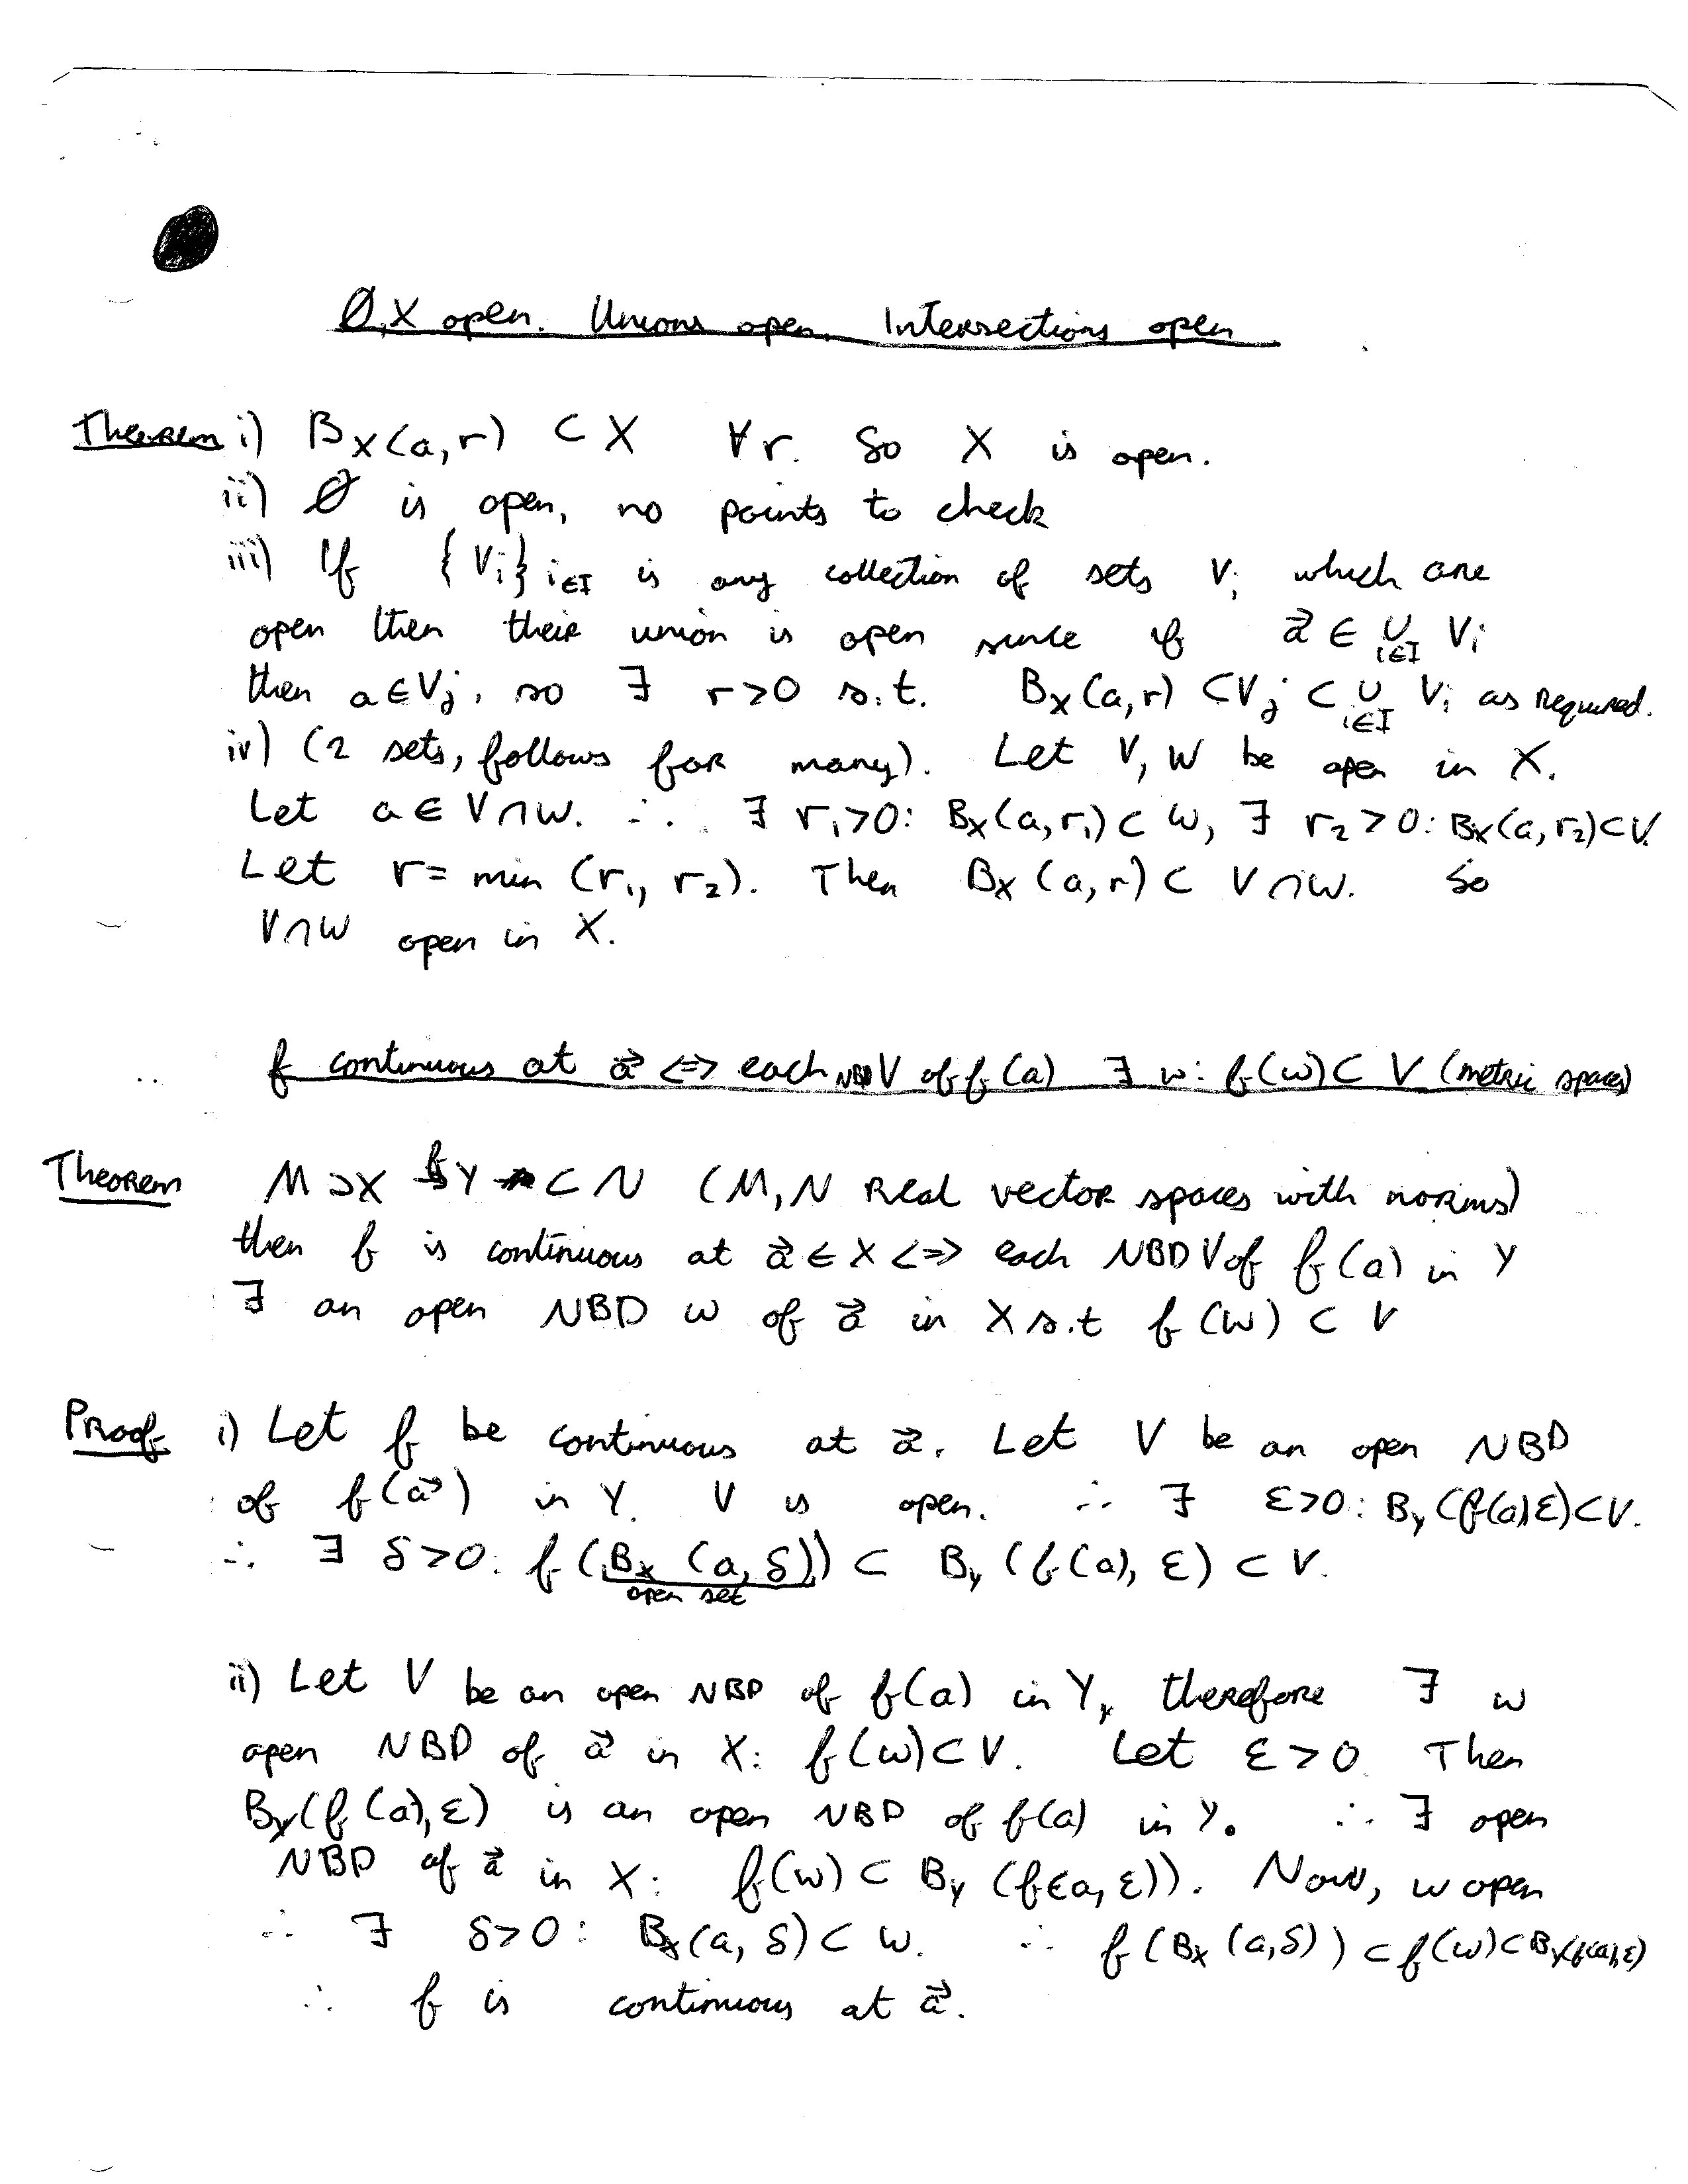 ∅, X open. Unions open. Intersections open
Theorem i) B_X(a,r) ⊂ X ∀r. So X is open.
ii) ∅ is open, no points to check
iii) If {V_i}_{i∈I} is any collection of sets V_i which are
open then their union is open since if a⃗ ∈ ∪_{i∈I} V_i
then a∈V_j, so ∃ r>0 s.t. B_X(a,r) ⊂ V_j ⊂ ∪_{i∈I} V_i as required.
iv) (2 sets, follows for many). Let V, W be open in X.
Let a ∈ V∩W. ∴ ∃ r_1>0: B_X(a,r_1) ⊂ W, ∃ r_2>0: B_X(a,r_2)⊂V.
Let r = min (r_1, r_2). Then B_X(a,r) ⊂ V∩W. So
V∩W open in X.
f continuous at a⃗ <=> each NBD V of f(a) ∃ w: f(w) ⊂ V (metric spaces)
Theorem M ⊃ X →^f Y ⊂ N (M, N real vector spaces with norms)
then f is continuous at a⃗ ∈ X <=> each NBD V of f(a) in Y
∃ an open NBD w of a⃗ in X s.t f(W) ⊂ V
Proof i) Let f be continuous at a⃗. Let V be an open NBD
of f(a⃗) in Y. V is open. ∴ ∃ ε>0: B_Y(f(a),ε)⊂V.
∴ ∃ δ>0: f(B_X(a,δ)) ⊂ B_Y(f(a), ε) ⊂ V.
open set
ii) Let V be an open NBD of f(a) in Y, therefore ∃ w
open NBD of a⃗ in X: f(w)⊂V. Let ε>0. Then
B_Y(f(a),ε) is an open NBD of f(a) in Y. ∴ ∃ open
NBD of a⃗ in X: f(w) ⊂ B_Y(f(a,ε)). Now, w open
∴ ∃ δ>0: B_X(a,δ) ⊂ w. ∴ f(B_X(a,δ)) ⊂ f(w) ⊂ B_Y(f(a),ε)
∴ f is continuous at a⃗.